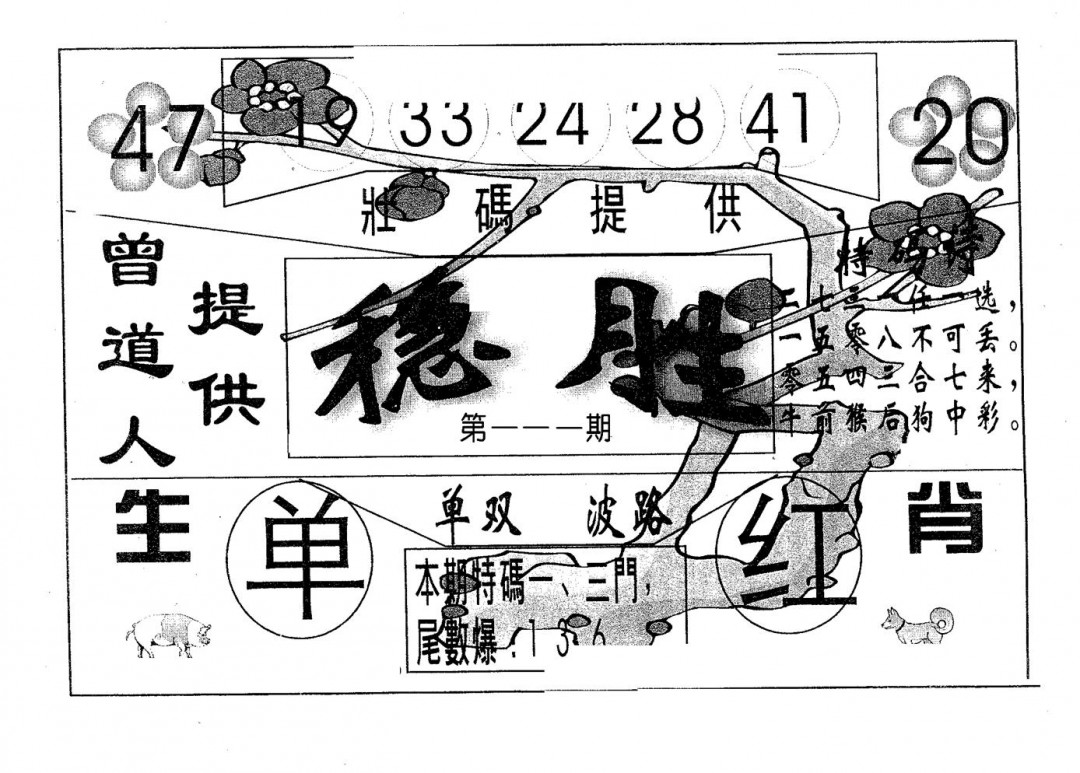 47 19 33 24 28 41 20
壯碼提供
曾道人
提供
稳胜
第一一一期
特码诗
二七三一任一选，
一五零八不可丢。
零五四三合七来，
牛前猴后狗中彩。
生
单
单双 波路
红
肖
本期特碼一、三門，
尾數爆:136